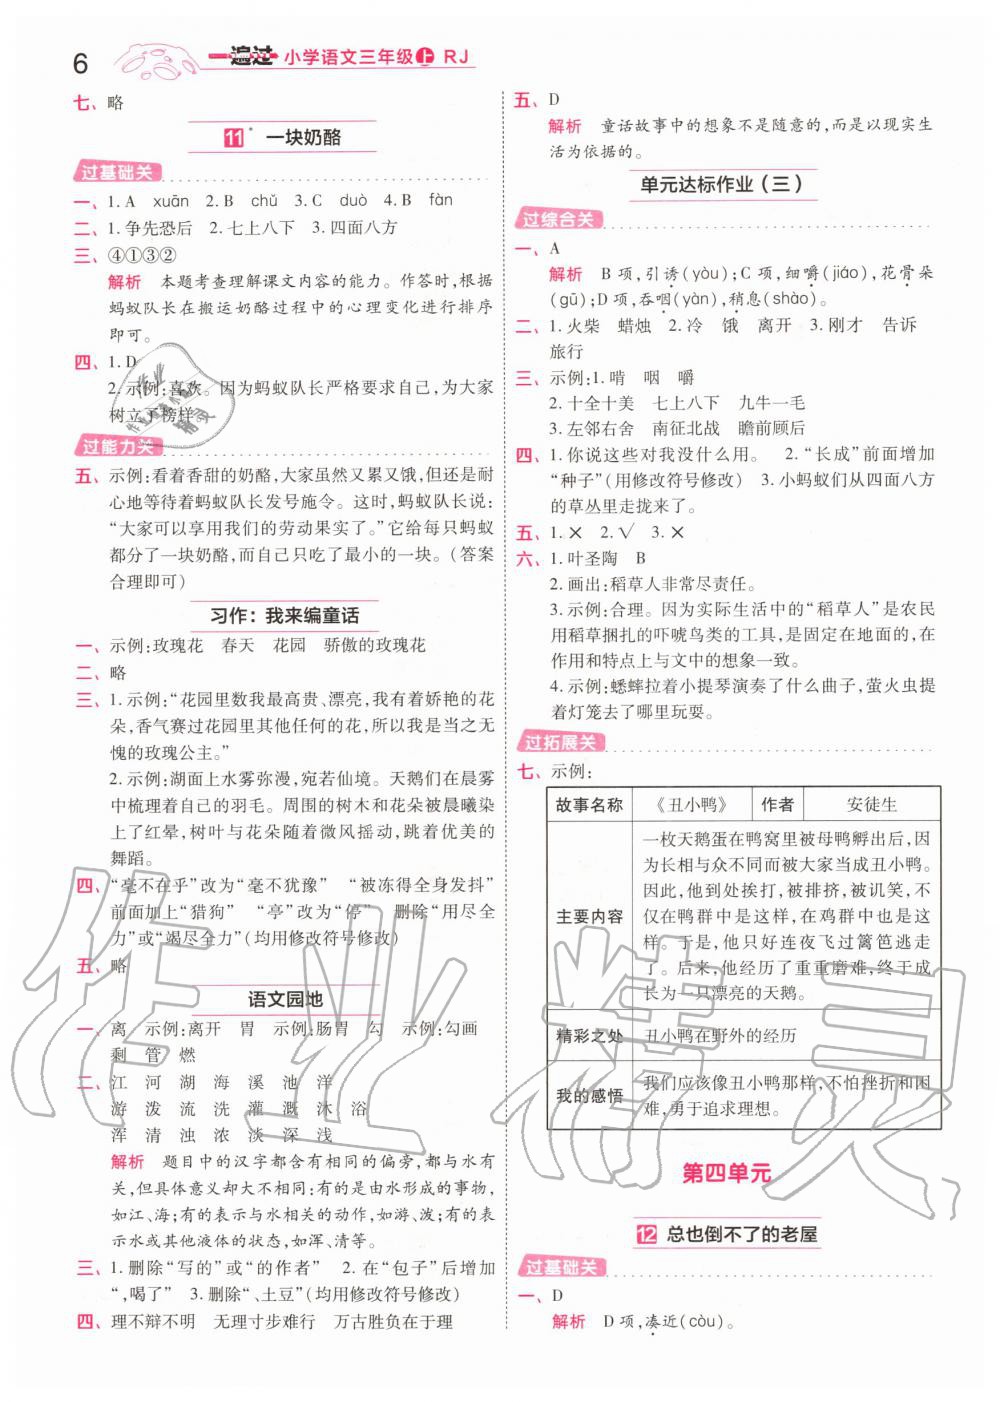 6
一遍过 小学语文三年级 上 RJ
七、略
11* 一块奶酪
过基础关
一、1. A xuān 2. B chǔ 3. C duò 4. B fàn
二、1. 争先恐后 2. 七上八下 3. 四面八方
三、④①③②
解析 本题考查理解课文内容的能力。作答时,根据
蚂蚁队长在搬运奶酪过程中的心理变化进行排序
即可。
四、1. D
2. 示例:喜欢。因为蚂蚁队长严格要求自己,为大家
树立了榜样。
过能力关
五、示例:看着香甜的奶酪,大家虽然又累又饿,但还是耐
心地等待着蚂蚁队长发号施令。这时,蚂蚁队长说:
“大家可以享用我们的劳动果实了。”它给每只蚂蚁
都分了一块奶酪,而自己只吃了最小的一块。(答案
合理即可)
习作：我来编童话
一、示例:玫瑰花 春天 花园 骄傲的玫瑰花
二、略
三、1. 示例:“花园里数我最高贵、漂亮,我有着娇艳的花
朵,香气赛过花园里其他任何的花,所以我是当之无
愧的玫瑰公主。”
2. 示例:湖面上水雾弥漫,宛若仙境。天鹅们在晨雾
中梳理着自己的羽毛。周围的树木和花朵被晨曦染
上了红晕,树叶与花朵随着微风摇动,跳着优美的
舞蹈。
四、“毫不在乎”改为“毫不犹豫” “被冻得全身发抖”
前面加上“猎狗” “亭”改为“停” 删除“用尽全
力”或“竭尽全力”(均用修改符号修改)
五、略
语文园地
一、离 示例:离开 胃 示例:肠胃 勾 示例:勾画
剩 管 燃
二、江 河 湖 海 溪 池 洋
游 泼 流 洗 灌 溉 沐 浴
浑 清 浊 浓 淡 深 浅
解析 题目中的汉字都含有相同的偏旁,都与水有
关,但具体意义却大不相同:有的是由水形成的事物,
如江、海;有的表示与水相关的动作,如游、泼;有的表
示水或其他液体的状态,如浑、清等。
三、1. 删除“写的”或“的作者” 2. 在“包子”后增加
“,喝了” 3. 删除“、土豆”(均用修改符号修改)
四、理不辩不明 无理寸步难行 万古胜负在于理
五、D
解析 童话故事中的想象不是随意的,而是以现实生
活为依据的。
单元达标作业(三)
过综合关
一、A
解析 B 项,引诱(yòu);C 项,细嚼(jiáo),花骨朵
(gū);D 项,吞咽(yàn),稍息(shào)。
二、1. 火柴 蜡烛 2. 冷 饿 离开 3. 刚才 告诉
旅行
三、示例:1. 啃 咽 嚼
2. 十全十美 七上八下 九牛一毛
3. 左邻右舍 南征北战 瞻前顾后
四、1. 你说这些对我没什么用。 2. “长成”前面增加
“种子”(用修改符号修改) 3. 小蚂蚁们从四面八方
的草丛里走拢来了。
五、1. × 2. √ 3. ×
六、1. 叶圣陶 B
2. 画出:稻草人非常尽责任。
3. 示例:合理。因为实际生活中的“稻草人”是农民
用稻草捆扎的吓唬鸟类的工具,是固定在地面的,在
作用和特点上与文中的想象一致。
4. 示例:蟋蟀拉着小提琴演奏了什么曲子,萤火虫提
着灯笼去了哪里玩耍。
过拓展关
七、示例:
故事名称 《丑小鸭》 作者 安徒生
主要内容
一枚天鹅蛋在鸭窝里被母鸭孵出后,因
为长相与众不同而被大家当成丑小鸭。
因此,他到处挨打,被排挤,被讥笑,不
仅在鸭群中是这样,在鸡群中也是这
样。于是,他只好连夜飞过篱笆逃走
了。后来,他经历了重重磨难,终于成
长为一只漂亮的天鹅。
精彩之处 丑小鸭在野外的经历
我的感悟
我们应该像丑小鸭那样,不怕挫折和困
难,勇于追求理想。
第四单元
12 总也倒不了的老屋
过基础关
一、D
解析 D 项,凑近(còu)。
作业精灵